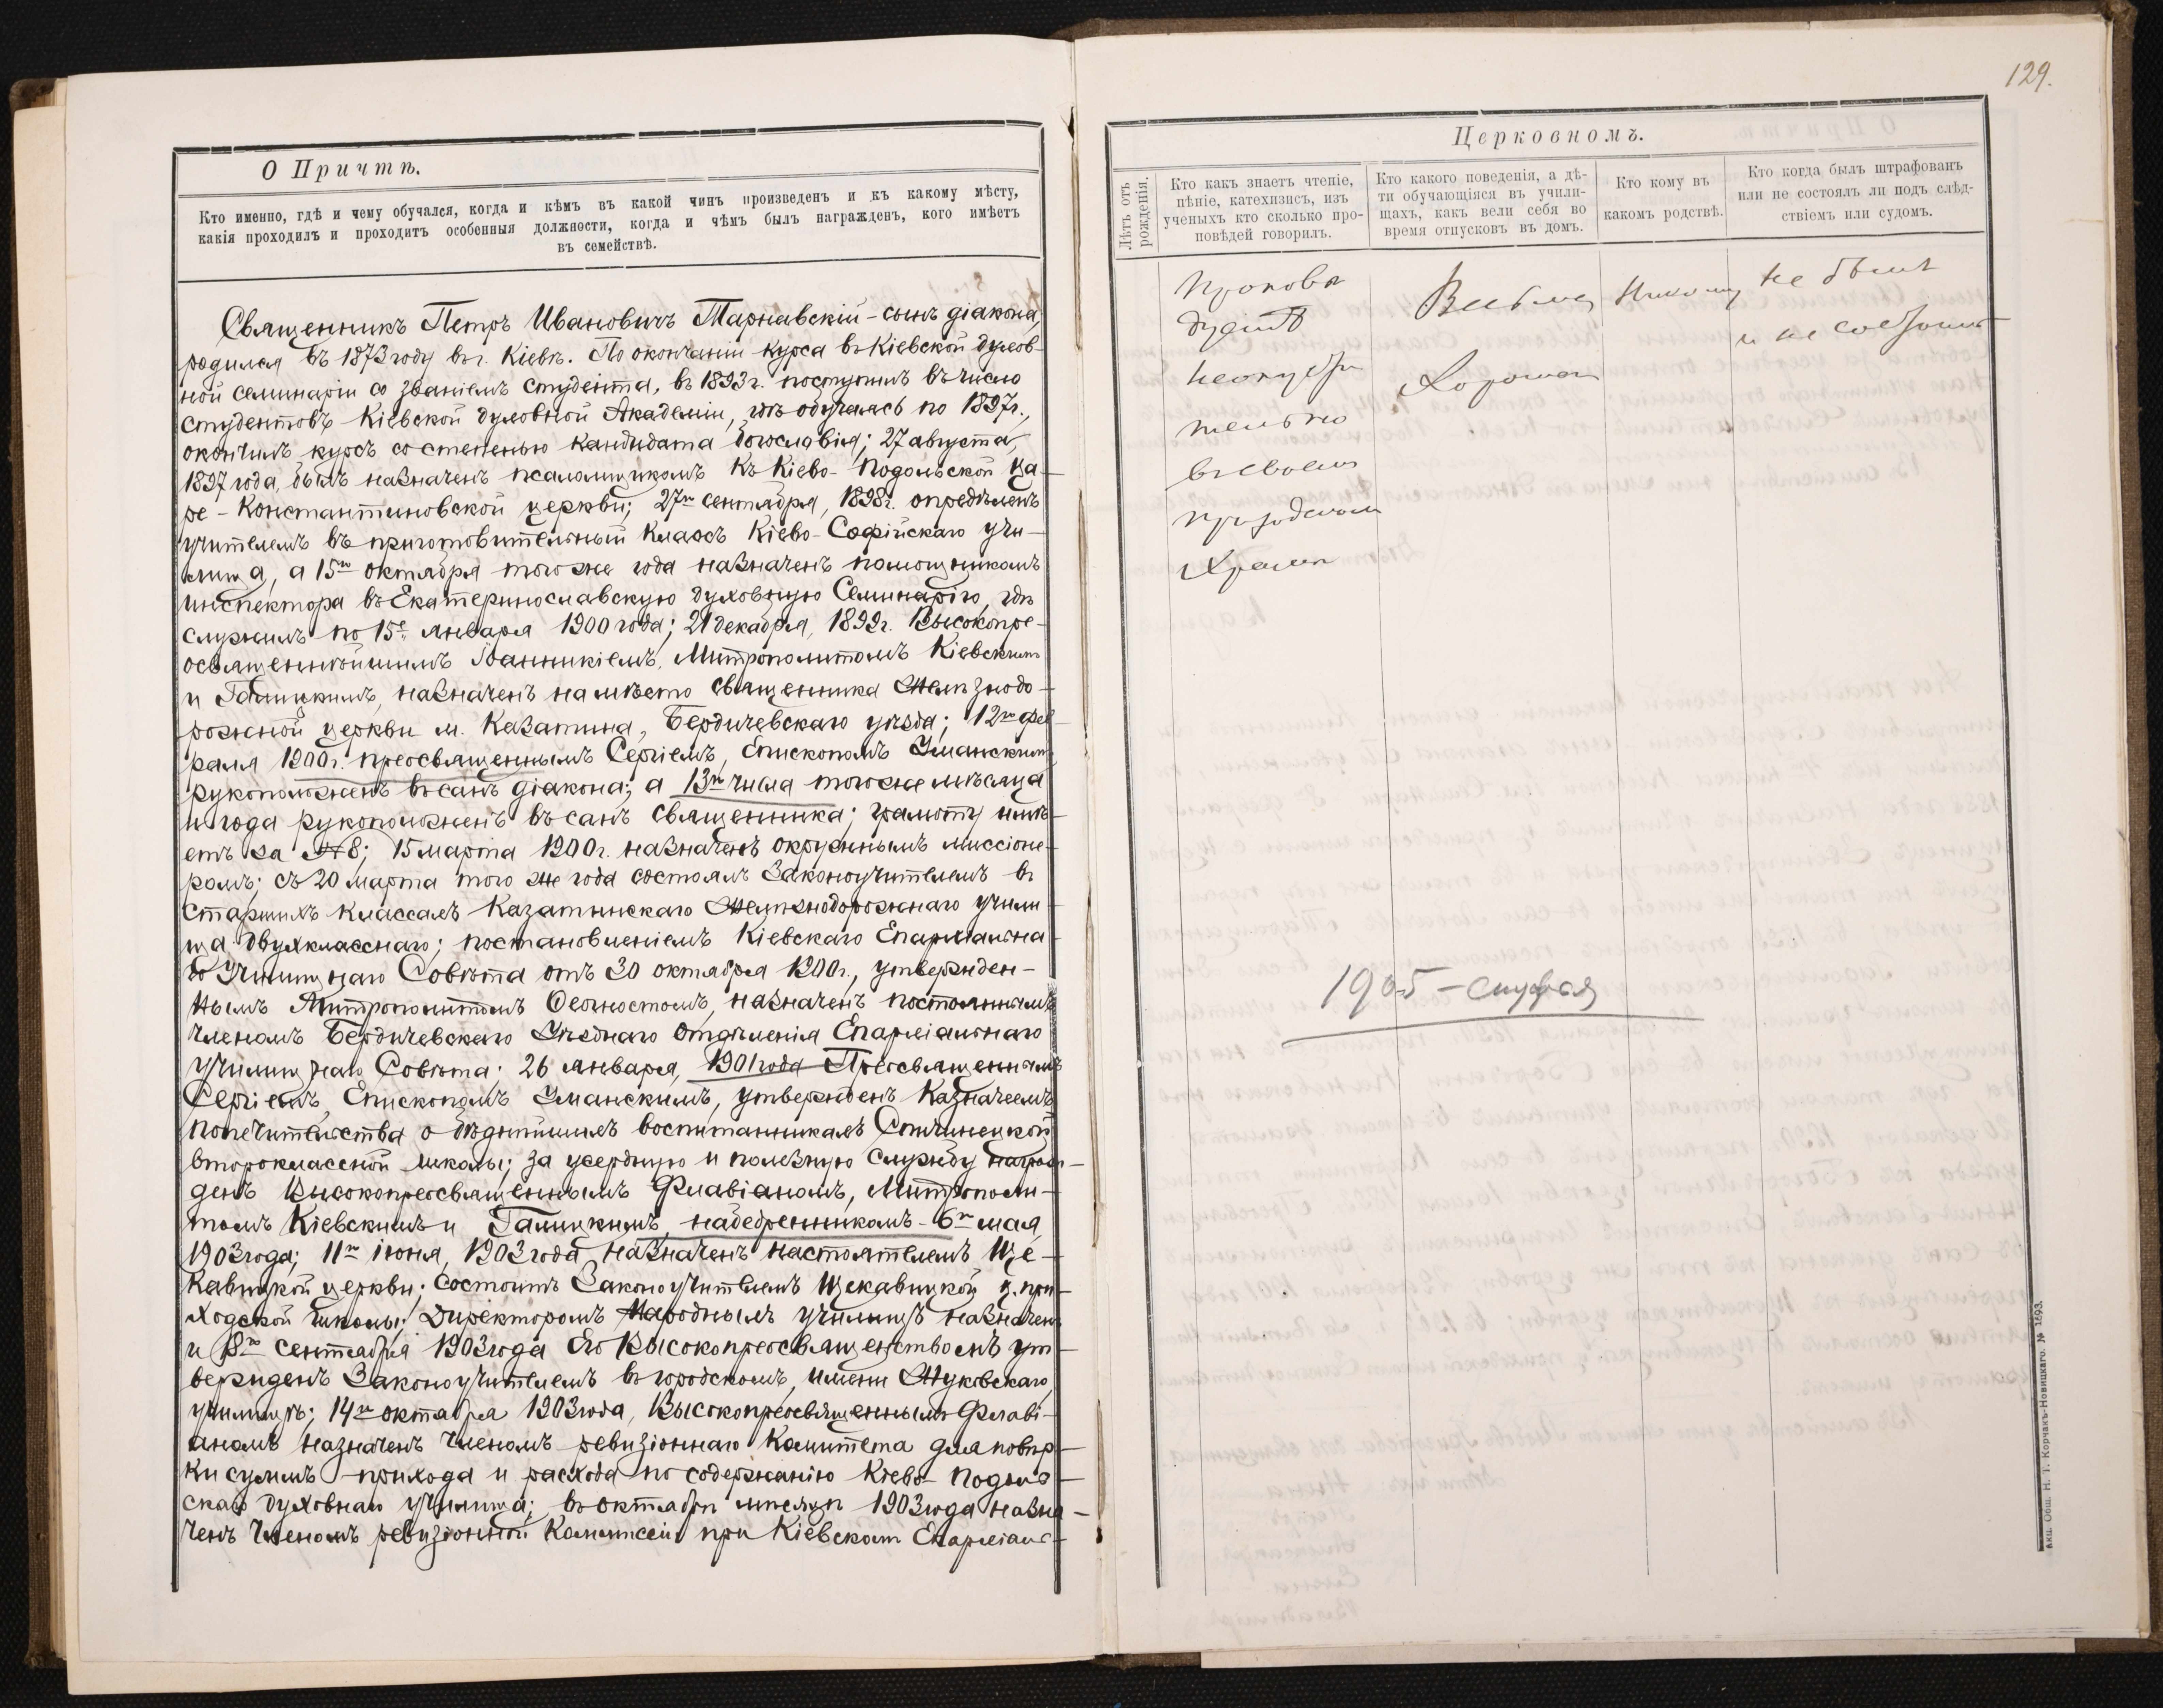 О Причтѣ.
Кто именно, гдѣ и чему обучался, когда и кѣмъ въ какой чинъ произведенъ и къ какому мѣсту,
какія проходилъ и проходитъ особенныя должности, когда и чѣмъ былъ награжденъ, кого имѣетъ
въ семействѣ.
Священникъ Петръ Ивановичъ Тарнавскій - сынъ діакона,
родился въ 1873 году въ г. Кіевѣ. По окончаніи курса въ Кіевской духов-
ной семинаріи со званіемъ студента, въ 1893 г. поступилъ въ число
студентовъ Кіевской духовной Академіи, гдѣ обучаясь по 1897 г.,
окончилъ курсъ со степенью кандидата богословія; 27 августа,
1897 года, былъ назначенъ псаломщикомъ къ Кіево-Подольской Ца-
ре-Константиновской церкви; 27го сентября, 1898 г. опредѣленъ
учителемъ въ приготовительный классъ Кіево-Софійскаго учи-
лища, а 15го октября того же года назначенъ помощникомъ
инспектора въ Екатеринославскую духовную Семинарію, гдѣ
служилъ по 15е января 1900 года; 21 декабря, 1899 г. Высокопре-
освященнѣйшимъ Іоанникіемъ, Митрополитомъ Кіевскимъ
и Галицкимъ, назначенъ на мѣсто священника Желѣзнодо-
рожной церкви м. Казатина, Бердичевскаго уѣзда; 12го фев-
раля 1900 г. преосвященнымъ Сергіемъ, Епископомъ Уманскимъ,
рукоположенъ въ санъ діакона; а 13го числа того же мѣсяца
и года рукоположенъ въ санъ священника; грамоту имѣ-
етъ за № 8; 15 марта 1900 г. назначенъ окружнымъ миссіоне-
ромъ; съ 20 марта того же года состоялъ Законоучителемъ въ
старшихъ классахъ Казатинскаго Желѣзнодорожнаго учили-
ща двухкласснаго; постановленіемъ Кіевскаго Епархіальна-
го Училищнаго Совѣта отъ 30 октября 1900 г., утвержден-
нымъ Митрополитомъ Ѳеогностомъ, назначенъ постояннымъ
членомъ Бердичевскаго Уѣзднаго Отдѣленія Епархіальнаго
Училищнаго Совѣта; 26 января, 1901 года Преосвященнымъ
Сергіемъ, Епископомъ Уманскимъ, утвержденъ Казначеемъ
попечительства о бѣднѣйшихъ воспитанникахъ
второклассной школы; за усердную и полезную службу награж-
денъ Высокопреосвященнымъ Флавіаномъ, Митрополи-
томъ Кіевскимъ и Галицкимъ, набедренникомъ - 6го мая,
1903 года; 11го іюня, 1903 года назначенъ настоятелемъ Ще-
кавицкой церкви; состоитъ Законоучителемъ Щекавицкой ц. при-
ходской школы; Директоромъ Народныхъ училищъ назначенъ
и 8го сентября 1903 года Его Высокопреосвященствомъ ут-
вержденъ Законоучителемъ въ городскомъ, имени Жуковскаго,
училищѣ; 14го октября 1903 года, Высокопреосвященнымъ Флаві-
аномъ назначенъ членомъ ревизіоннаго Комитета для повѣр-
ки суммъ прихода и расхода по содержанію Кіево-Подоль-
скаго духовнаго училища; въ октябрѣ мѣсяцѣ 1903 года назна-
ченъ членомъ ревизіонной Коммиссіи при Кіевскомъ Епархіаль-
129.
Церковномъ.
Лѣтъ отъ рожденія.
Кто какъ знаетъ чтеніе,
пѣніе, катехизисъ, изъ
ученыхъ кто сколько про-
повѣдей говорилъ.
Кто какого поведенія, а дѣ-
ти обучающіяся въ учили-
щахъ, какъ вели себя во
время отпусковъ въ домъ.
Кто кому въ
какомъ родствѣ.
Кто когда былъ штрафованъ
или не состоялъ ли подъ слѣд-
ствіемъ или судомъ.
Проповѣ
дуетъ
неопусти
тельно
въ своемъ
приходскомъ
храмѣ
Весьма
Хорошаго
Никому
не былъ
и не состоитъ
1905 -
Акц. Общ. Н. Т. Корчакъ-Новицкаго. № 1693.